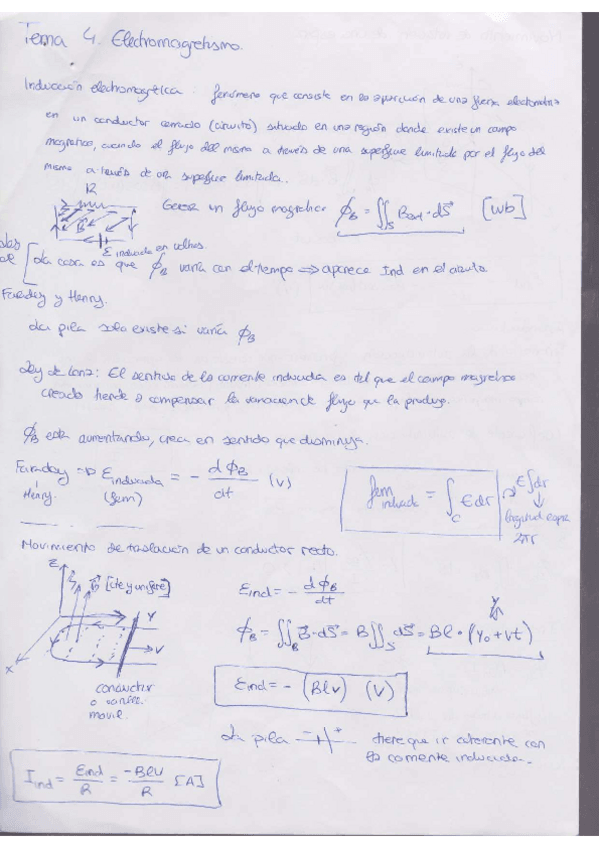 Tema 4. Electromagnetismo.
Inducción electromagnética: fenómeno que consiste en la aparición de una fuerza electromotriz
en un conductor cerrado (circuito) situado en una región donde existe un campo
magnético, cuando el flujo del mismo a través de una superficie limitada por el flujo del
mismo a través de una superficie limitada.
R
Generar un flujo magnético ϕ_B = ∬_S B_ext · dS⃗ [Wb]
B⃗
ε inducida en voltios.
La cosa es que ϕ_B varía con el tiempo ⇒ aparece Ind en el circuito
Faraday y Henry.
La pila solo existe si varía ϕ_B
Ley de Lenz: El sentido de la corriente inducida es tal que el campo magnético
creado tiende a compensar la variación de flujo que la produjo.
ϕ_B está aumentando, crea en sentido que disminuya.
Faraday ⇒ ε inducida = - dϕ_B/dt (V)
Henry. (fem)
fem inducida = ∫_C E dr → E∫dr
↓
longitud espira
2πr
Movimiento de traslación de un conductor recto.
Z
B⃗ [cte y uniforme]
Y
V
X
conductor
o varilla
movil.
ε ind = - dϕ_B/dt
Y
ϕ_B = ∬ B⃗·dS⃗ = B ∬_S dS⃗ = Bl · (Y₀ + Vt)
ε ind = - (Blv) (V)
La pila - + tiene que ir coherente con
la corriente inducida.
I ind = ε ind/R = -Blv/R [A]